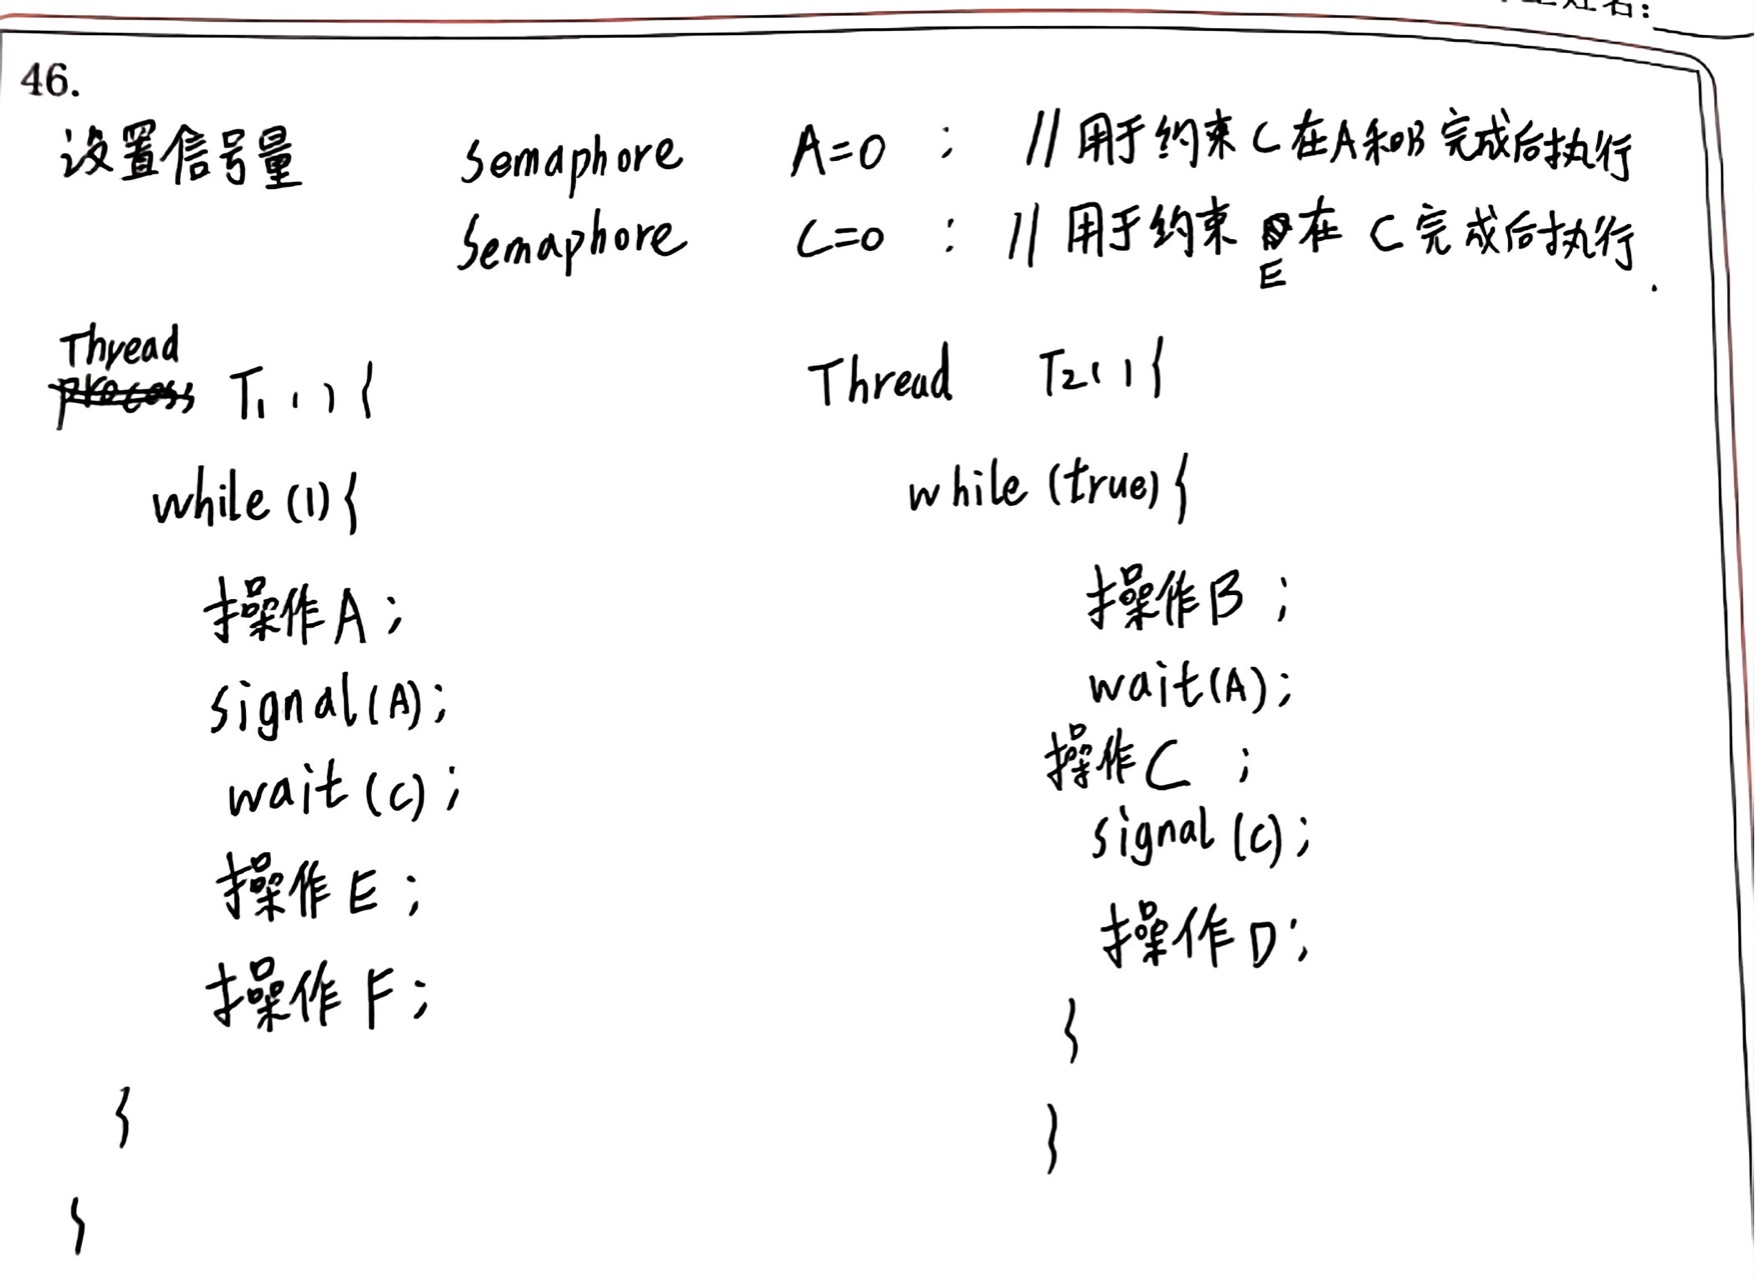 46.
设置信号量 Semaphore A=0 ; // 用于约束 C 在A和B 完成后执行
Semaphore C=0 : // 用于约束 在 C 完成后执行.
E
Thread
process T1 ( ) {
Thread T2( ) {
while (1) {
while (true) {
操作A ;
操作B ;
signal(A);
wait(A);
wait (c) ;
操作C ;
signal (c);
操作 E ;
操作 D;
操作 F ;
}
}
}
}